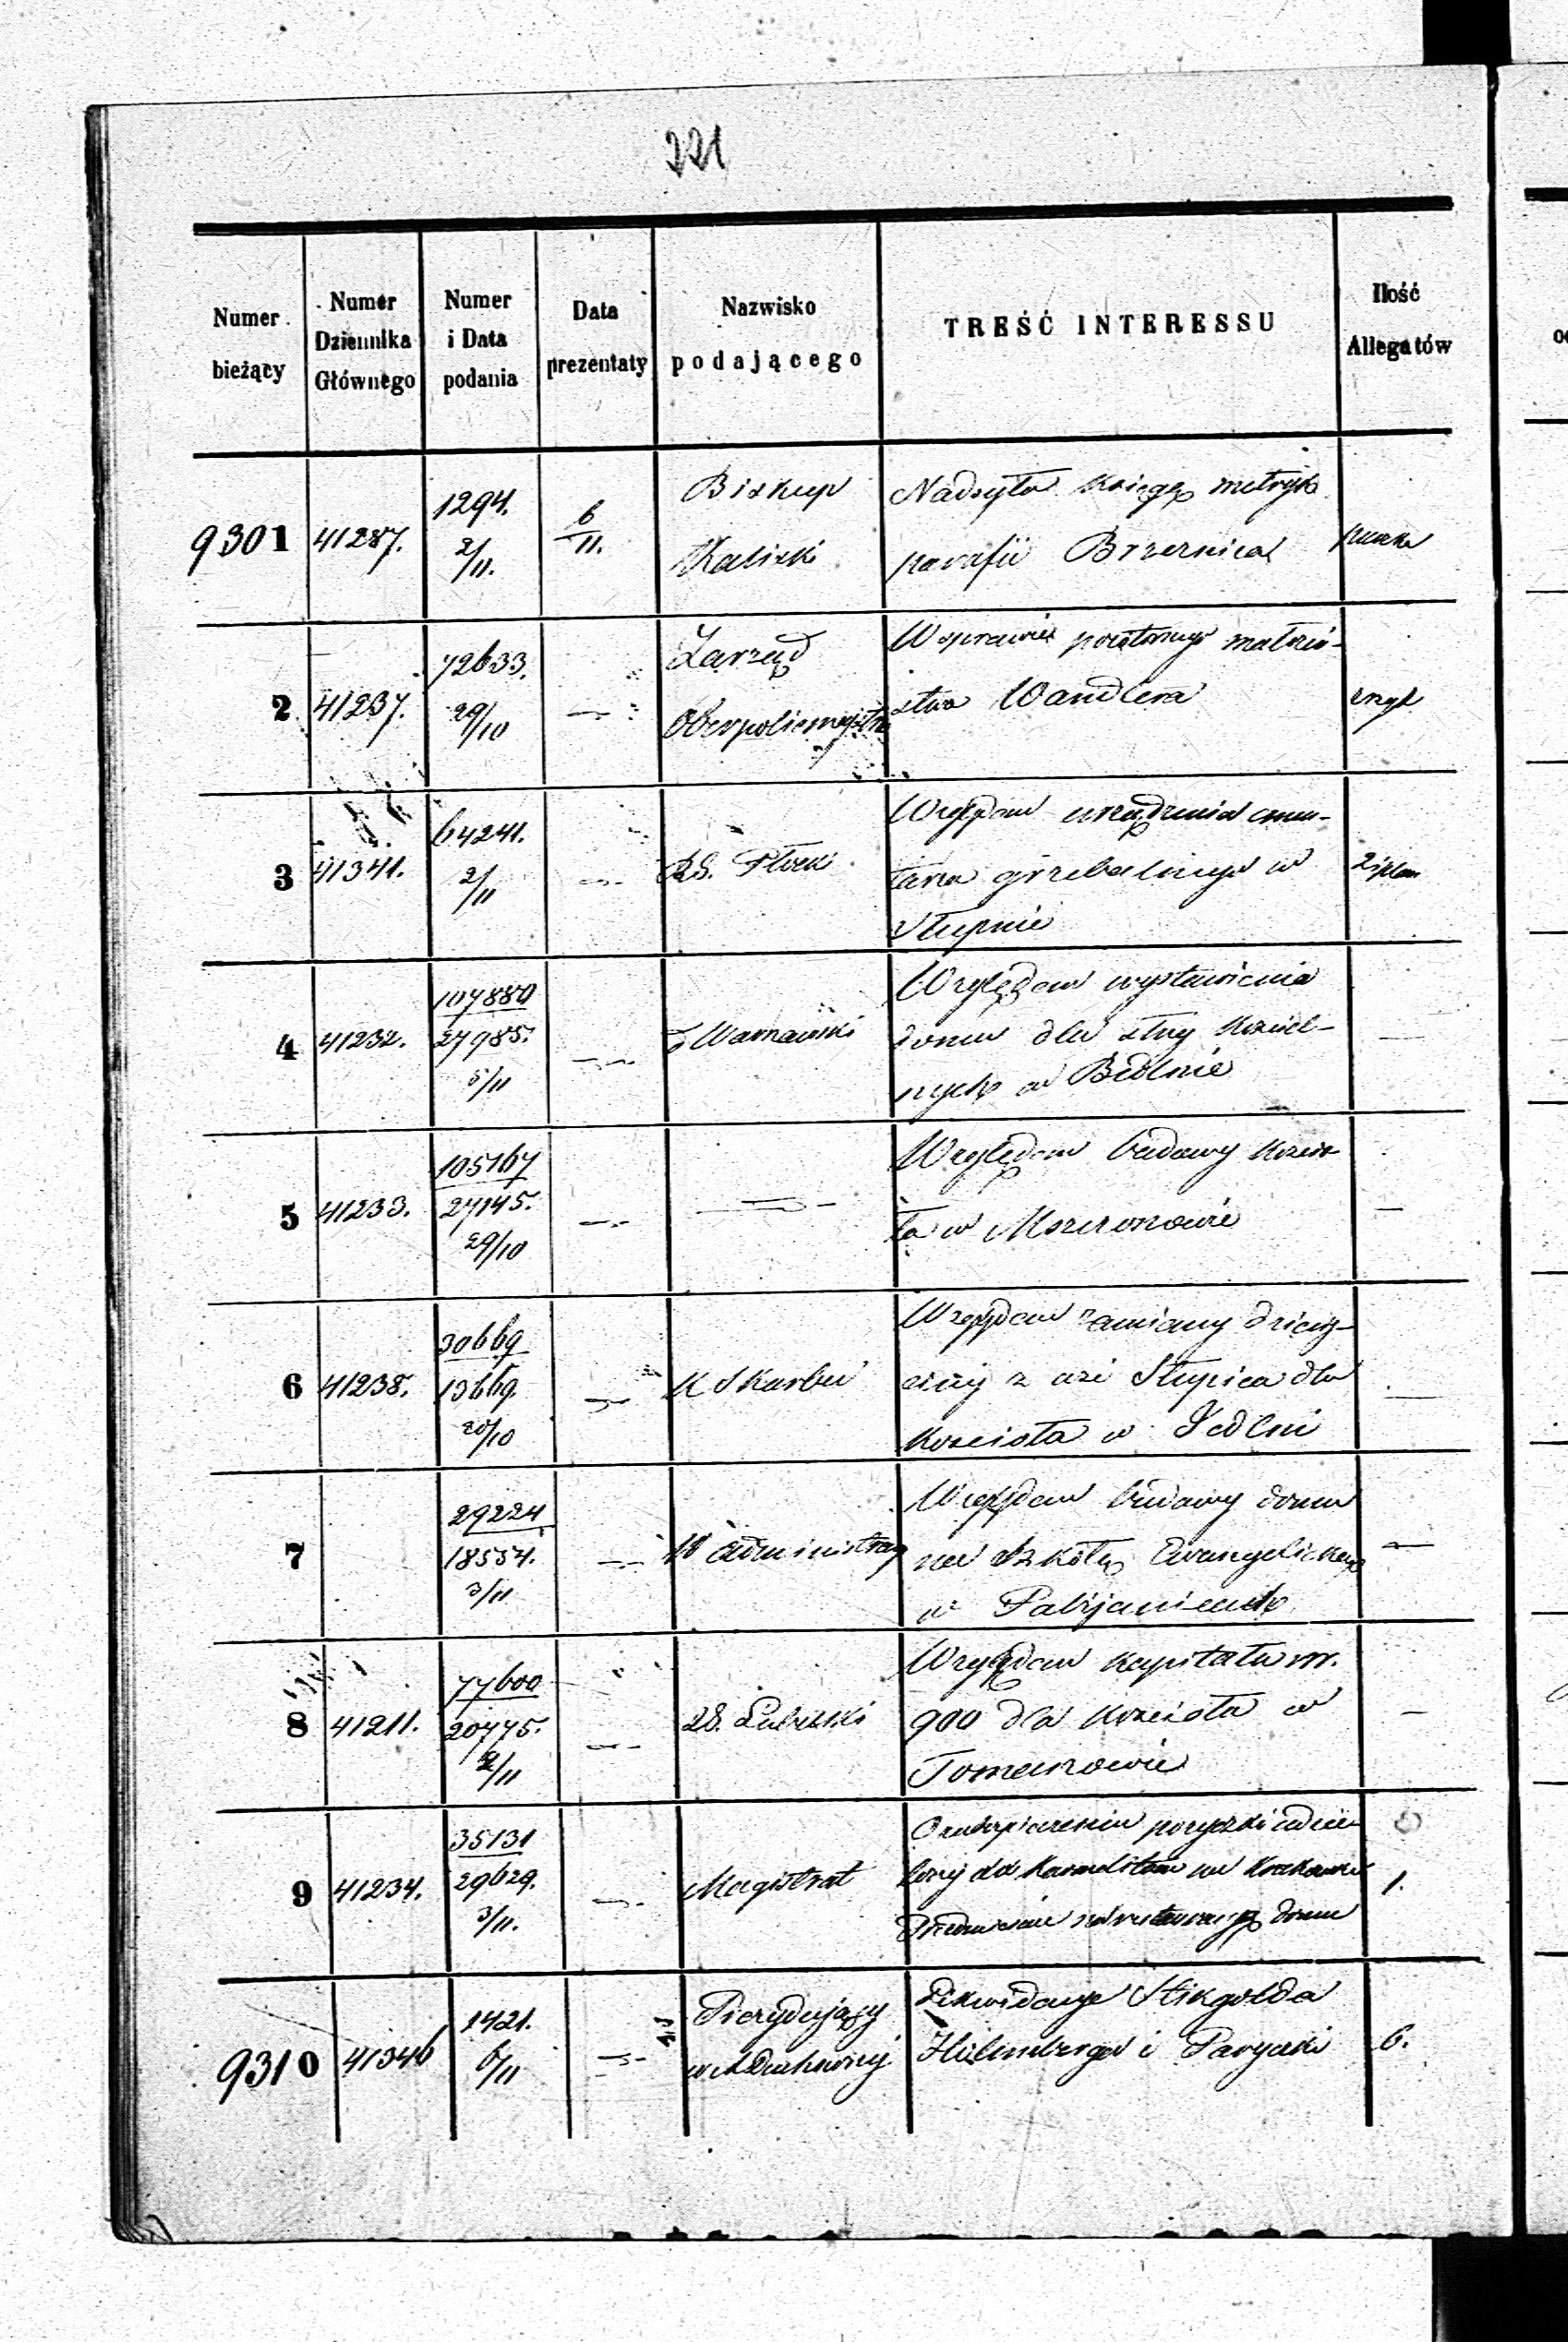 221
Numer bieżący
Numer Dziennika Głównego
Numer i Data podania
Data prezentaty
Nazwisko podającego
TREŚĆ INTERESSU
Ilość Allegatów
9301
41287.
1294.
2/11.
6/11.
Biskup
Kaliski
Nadsyła księgę metryk
parafii Brzeznica
2
41237.
72633.
29/10
Zarząd
Oberpolicmajstra
W sprawie powtórnego małżeń-
stwa Wandlera
3
41341.
64241.
2/11
RG. Płock
Względem urządzenia cmen-
tarza grzebalnego w
Słupnie
2 plan
4
41232.
107880
27985.
5/11
Warszawski
Względem wystawienia
domu dla sług kościel-
nych w Bedlnie
5
41233.
105167
27145.
29/10
Względem budowy kościo-
ła w Mszczonowie
6
41238.
30669
13669
20/10
K Skarbu
Względem zamiany dziesię-
ciny z wsi Słupica dla
Kościoła w Jedlni
7
29224
18554.
3/11
W administracy
Względem budowy domu
na Szkołę Ewangelicką
w Pabijanicach
8
41211.
77600
20775.
2/11
RG. Lubelski
Względem kapitału sr.
900 dla Kościoła w
Tomaszowie
9
41234.
35131
29629.
3/11.
Magistrat
O zabezpieczeniu pożyczki udzie-
lonej XX Karmelitom na Krakows:
Przedmieściu na restauracyą domu
1.
9310
41346
1421.
6/11
Prezydujący
Likwidacye
i
6.